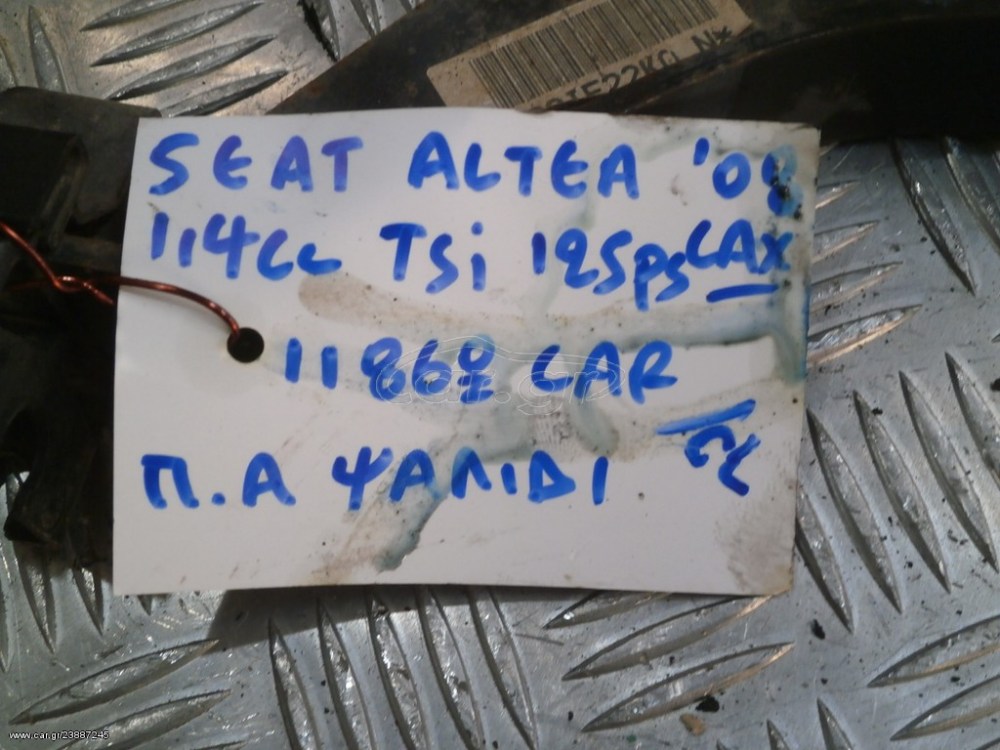 SEAT ALTEA '08
1,4cc TSi 125ps CAX
CAR
Π.Α ΨΑΛΙΔΙ
car.gr
www.car.gr/23887245